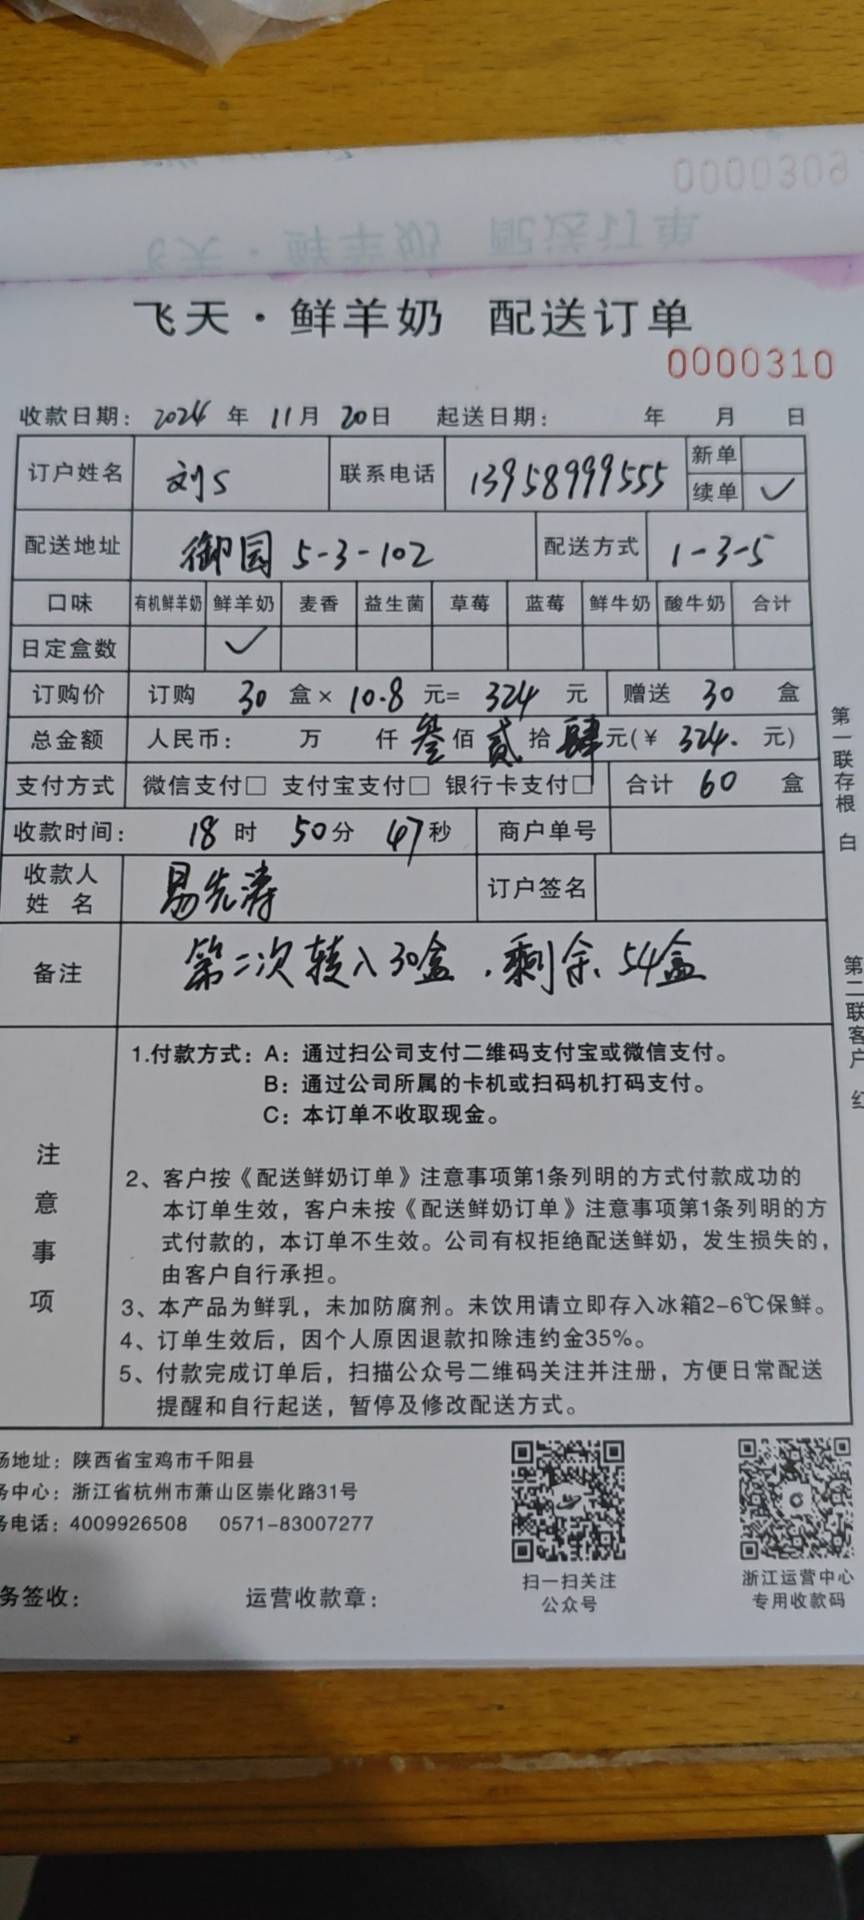 0000309
飞天·鲜羊奶 配送订单
飞天·鲜羊奶 配送订单
0000310
收款日期: 2024 年 11月 20日 起送日期: 年 月 日
订户姓名 刘S 联系电话 13958999555 新单
续单 ✓
配送地址 御园 5-3-102 配送方式 1-3-5
口味 有机鲜羊奶 鲜羊奶 麦香 益生菌 草莓 蓝莓 鲜牛奶 酸牛奶 合计
日定盒数 ✓
订购价 订购 30 盒× 10.8 元= 324 元 赠送 30 盒
总金额 人民币: 万 仟 叁佰 贰拾 肆元(¥ 324. 元)
支付方式 微信支付□ 支付宝支付□ 银行卡支付□ 合计 60 盒
收款时间: 18 时 50分 47秒 商户单号
收款人
姓 名 易先涛 订户签名
备注 第二次转入30盒,剩余54盒
注意事项
1.付款方式: A: 通过扫公司支付二维码支付宝或微信支付。
B: 通过公司所属的卡机或扫码机打码支付。
C: 本订单不收取现金。
2、客户按《配送鲜奶订单》注意事项第1条列明的方式付款成功的
本订单生效，客户未按《配送鲜奶订单》注意事项第1条列明的方
式付款的，本订单不生效。公司有权拒绝配送鲜奶，发生损失的，
由客户自行承担。
3、本产品为鲜乳，未加防腐剂。未饮用请立即存入冰箱2-6℃保鲜。
4、订单生效后，因个人原因退款扣除违约金35%。
5、付款完成订单后，扫描公众号二维码关注并注册，方便日常配送
提醒和自行起送，暂停及修改配送方式。
第一联存根 白
第二联客户 红
场地址: 陕西省宝鸡市千阳县
务中心: 浙江省杭州市萧山区崇化路31号
务电话: 4009926508 0571-83007277
扫一扫关注
公众号
浙江运营中心
专用收款码
务签收: 运营收款章: